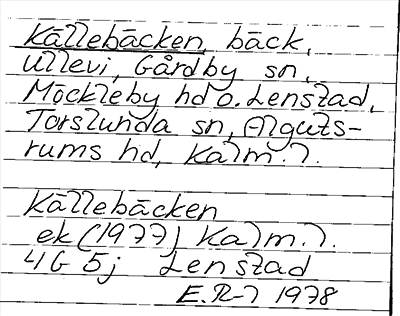 Källebäcken, bäck,
Ullevi, Gårdby sn,
Möckleby hd o. Lenstad,
Torslunda sn, Alguts-
rums hd, Kalm. l.
Källebäcken
ek (1977) Kalm. l.
4G 5j Lenstad
E.R-l 1978